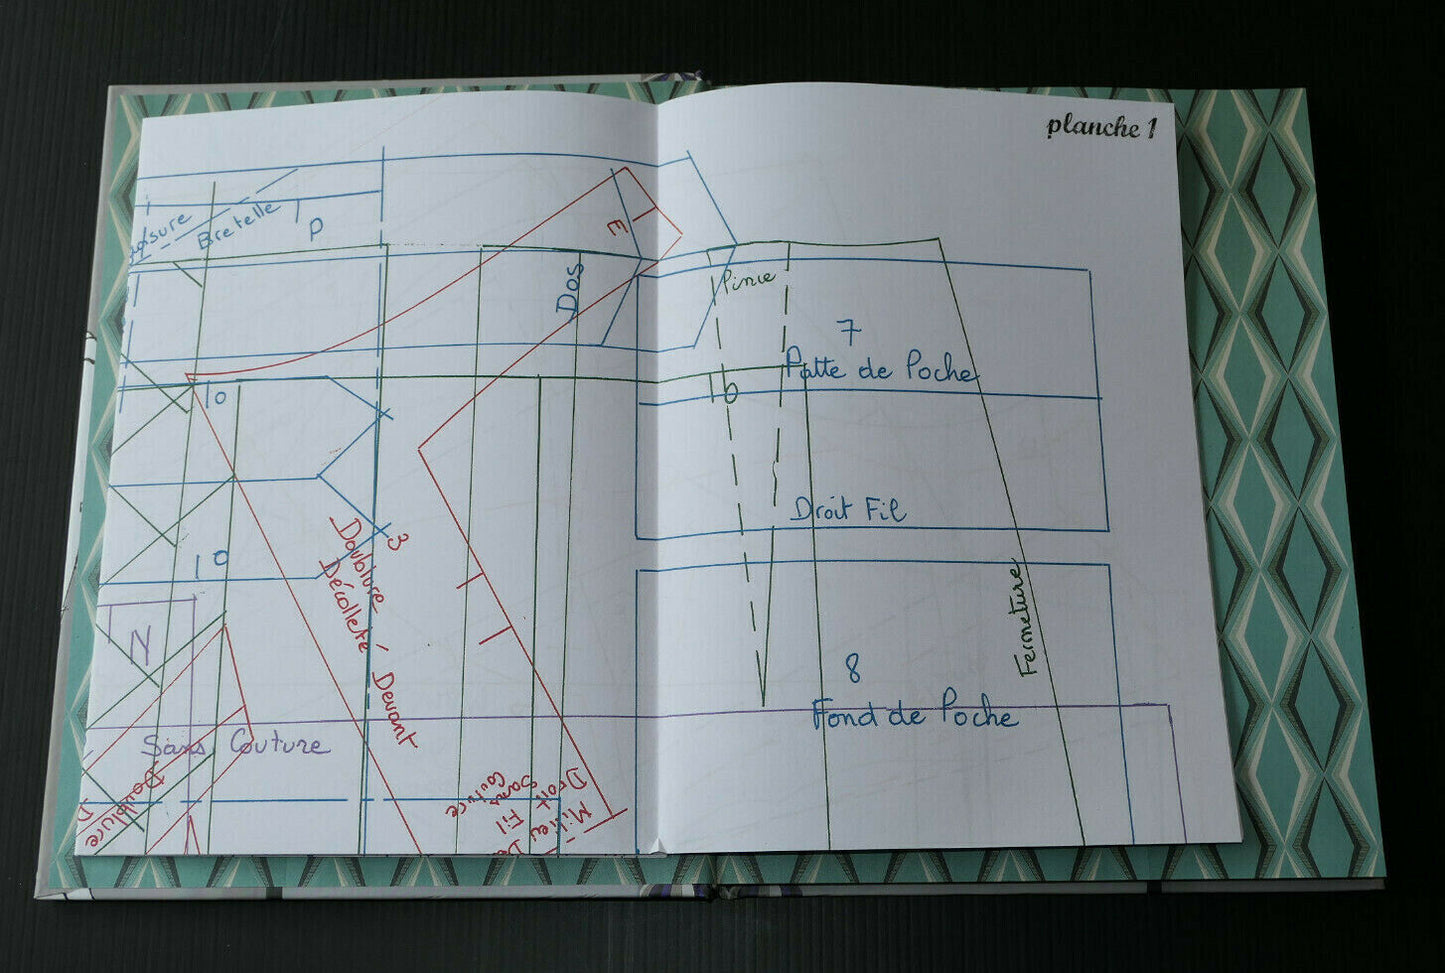 planche 1
Bretelle
P
E
Dos
Pince
7
Patte de Poche
10
16
Droit Fil
3
Doublure
Décolleté Devant
10
N
Fermeture
8
Fond de Poche
Sans Couture
Doublure
D
Droit Fil
Sans
Couture
Milieu